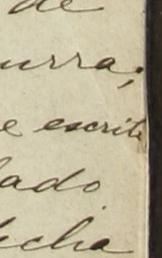 de
urra;
e escrito
ado
cha